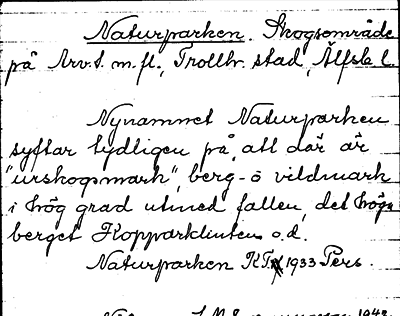 Naturparken. Skogsområde
på Arv.t. m. fl., Trollh. stad, Älfsb. l.
Nynamnet Naturparken
syftar tydligen på, att där är
"urskogsmark", berg- o vildmark
i hög grad utmed fallen, det höga
berget Kopparklinten o.d.
Naturparken KTx 1933 Pers.